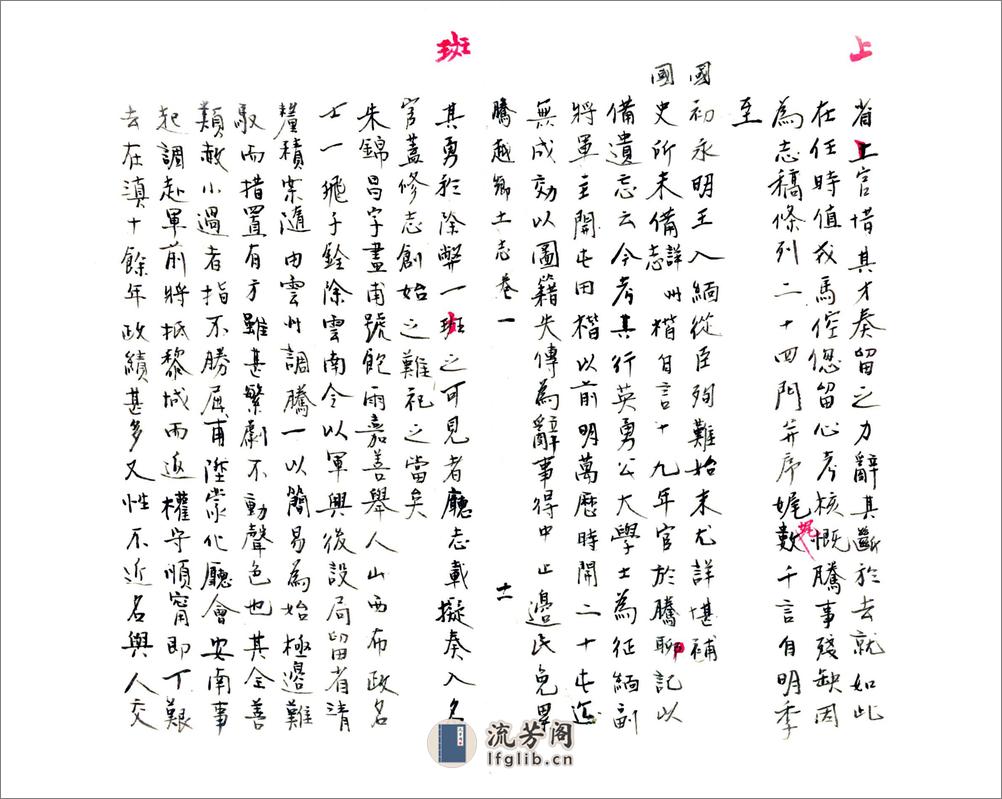 上
省上官惜其才奏留之力辭其斷於去就如此
在任時值戎馬倥偬留心考核慨騰事殘缺因
為志稿條列二十四門并序娓娓數千言自明季
至
國初永明王入緬從臣殉難始末尤詳堪補
國史所未備詳州志楷自言十九年官於騰聊記以
備遺忘云今考其行英勇公大學士為征緬副
將軍主開屯田楷以前明萬歷時開二十屯迄
無成効以圖籍失傳為辭事得中止邊民免累
騰越鄉土志卷一
十一
班
其勇於除弊一班之可見者廳志載擬奏入名
官蓋修志創始之難祀之當矣
朱錦昌字畫甫號飽雨嘉善舉人山西布政名
士一飛子銓除雲南令以軍興後設局留省清
釐積案隨由雲州調騰一以簡易為始極邊難
馭而措置有方雖甚繁劇不動聲色也其全善
類赦小過者指不勝屈甫陞蒙化廳會安南事
起調赴軍前將抵黎城而返權守順甯即丁艱
去在滇十餘年政績甚多又性不近名與人交
流芳阁
lfglib.cn